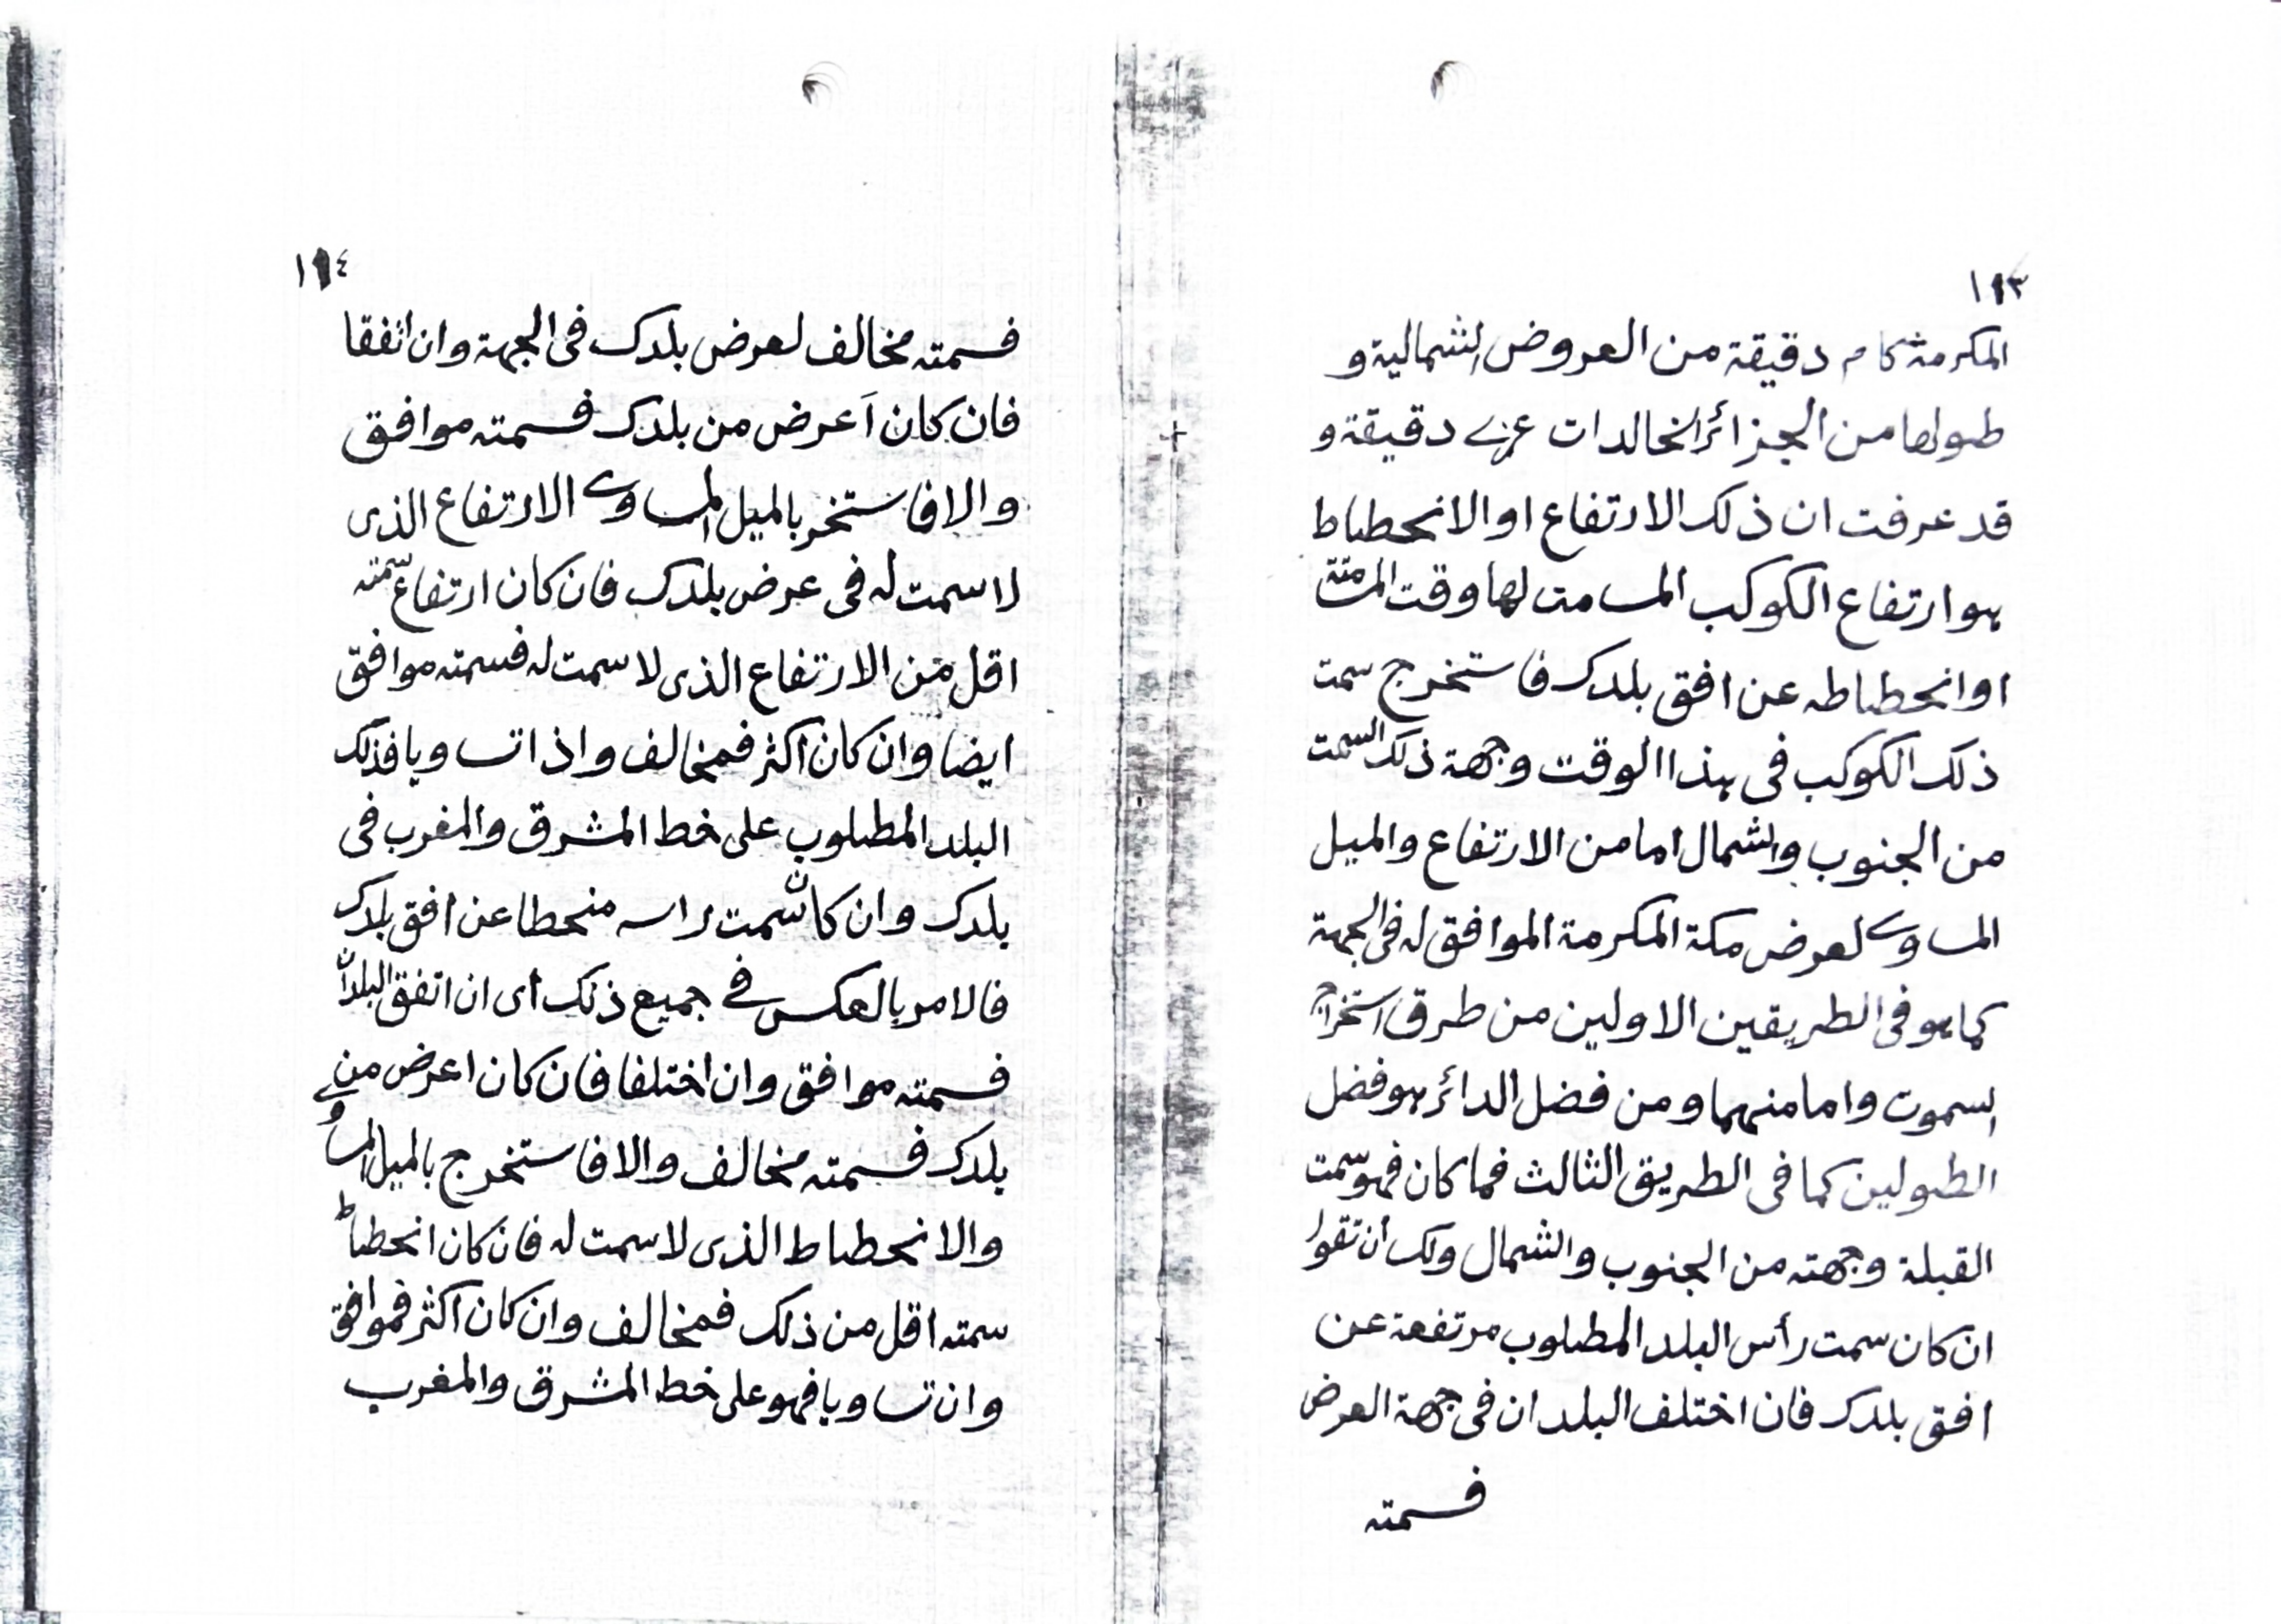 ١١٣
المكرمة كا م دقيقة من العروض الشمالية و
طولها من الجزائر الخالدات عزے دقيقة و
قد عرفت ان ذلك الارتفاع او الانحطاط
هو ارتفاع الكوكب المسامت لها وقت المسامتة
او انحطاطه عن افق بلدك فاستخرج سمت
ذلك الكوكب فى هذا الوقت وجهة ذلك السمت
من الجنوب والشمال اما من الارتفاع والميل
المساوے لعرض مكة المكرمة الموافق له فى الجهة
كما هو فى الطريقين الاولين من طرق استخراج
السموت واما منهما ومن فضل الدائر هو فضل
الطولين كما فى الطريق الثالث فما كان فهو سمت
القبلة وجهته من الجنوب والشمال ولك أن تقول
ان كان سمت رأس البلد المطلوب مرتفعة عن
افق بلدك فان اختلف البلدان فى جهة العرض
فسمته
١١٤
فسمته مخالف لعرض بلدك فى الجهة وان اتفقا
فان كان أعرض من بلدك فسمته موافق
والا فاستخر بالميل المساوے الارتفاع الذى
لا سمت له فى عرض بلدك فان كان ارتفاع سمته
اقل من الارتفاع الذى لا سمت له فسمته موافق
ايضا وان كان اكثر فمخالف واذا تساويا فذلك
البلد المطلوب على خط المشرق والمغرب فى
بلدك وان كان سمت راسه منحطا عن افق بلدك
فالامر بالعكس فے جميع ذلك أى ان اتفق البلدان
فسمته موافق وان اختلفا فان كان اعرض من
بلدك فسمته مخالف والا فاستخرج بالميل المساوے
والانحطاط الذى لا سمت له فان كان انحطاط
سمته اقل من ذلك فمخالف وان كان اكثر فموافق
وان تساويا فهو على خط المشرق والمغرب